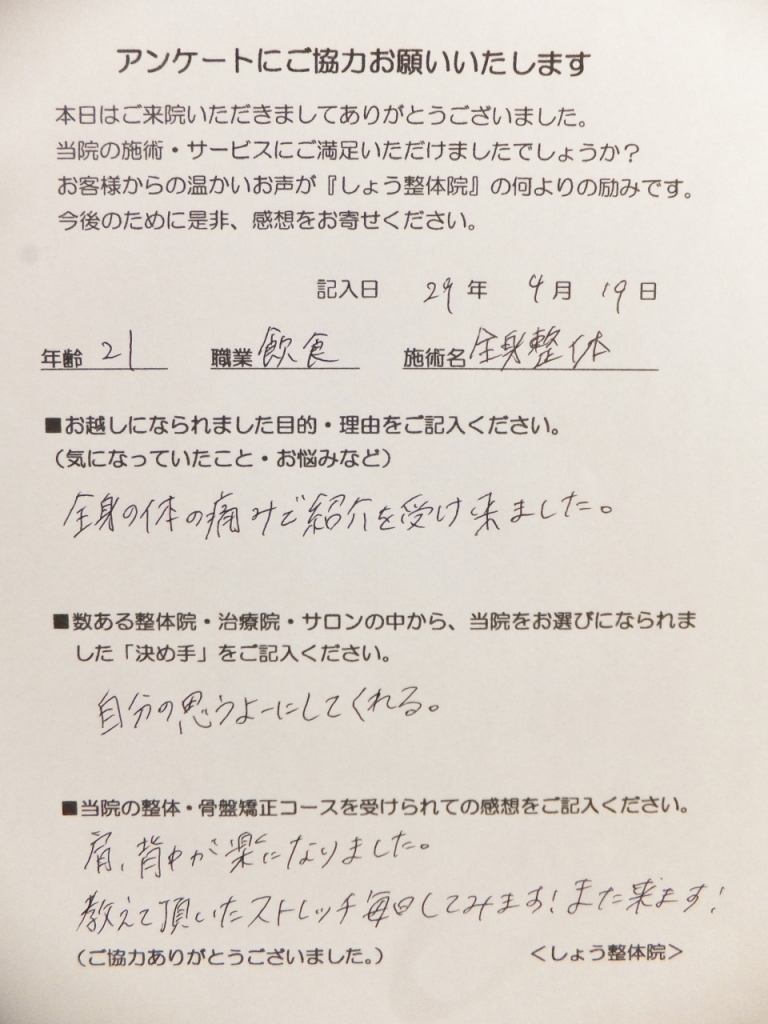 アンケートにご協力お願いいたします
本日はご来院いただきましてありがとうございました。
当院の施術・サービスにご満足いただけましたでしょうか?
お客様からの温かいお声が『しょう整体院』の何よりの励みです。
今後のために是非、感想をお寄せください。
記入日 29年 9月 19日
年齢 21 職業 飲食 施術名 全身整体
■お越しになられました目的・理由をご記入ください。
(気になっていたこと・お悩みなど)
全身の体の痛みで紹介を受け来ました。
■数ある整体院・治療院・サロンの中から、当院をお選びになられま
した「決め手」をご記入ください。
自分の思うよーにしてくれる。
■当院の整体・骨盤矯正コースを受けられての感想をご記入ください。
肩、背中が楽になりました。
教えて頂いたストレッチ毎日してみます!また来ます!
(ご協力ありがとうございました。) <しょう整体院>